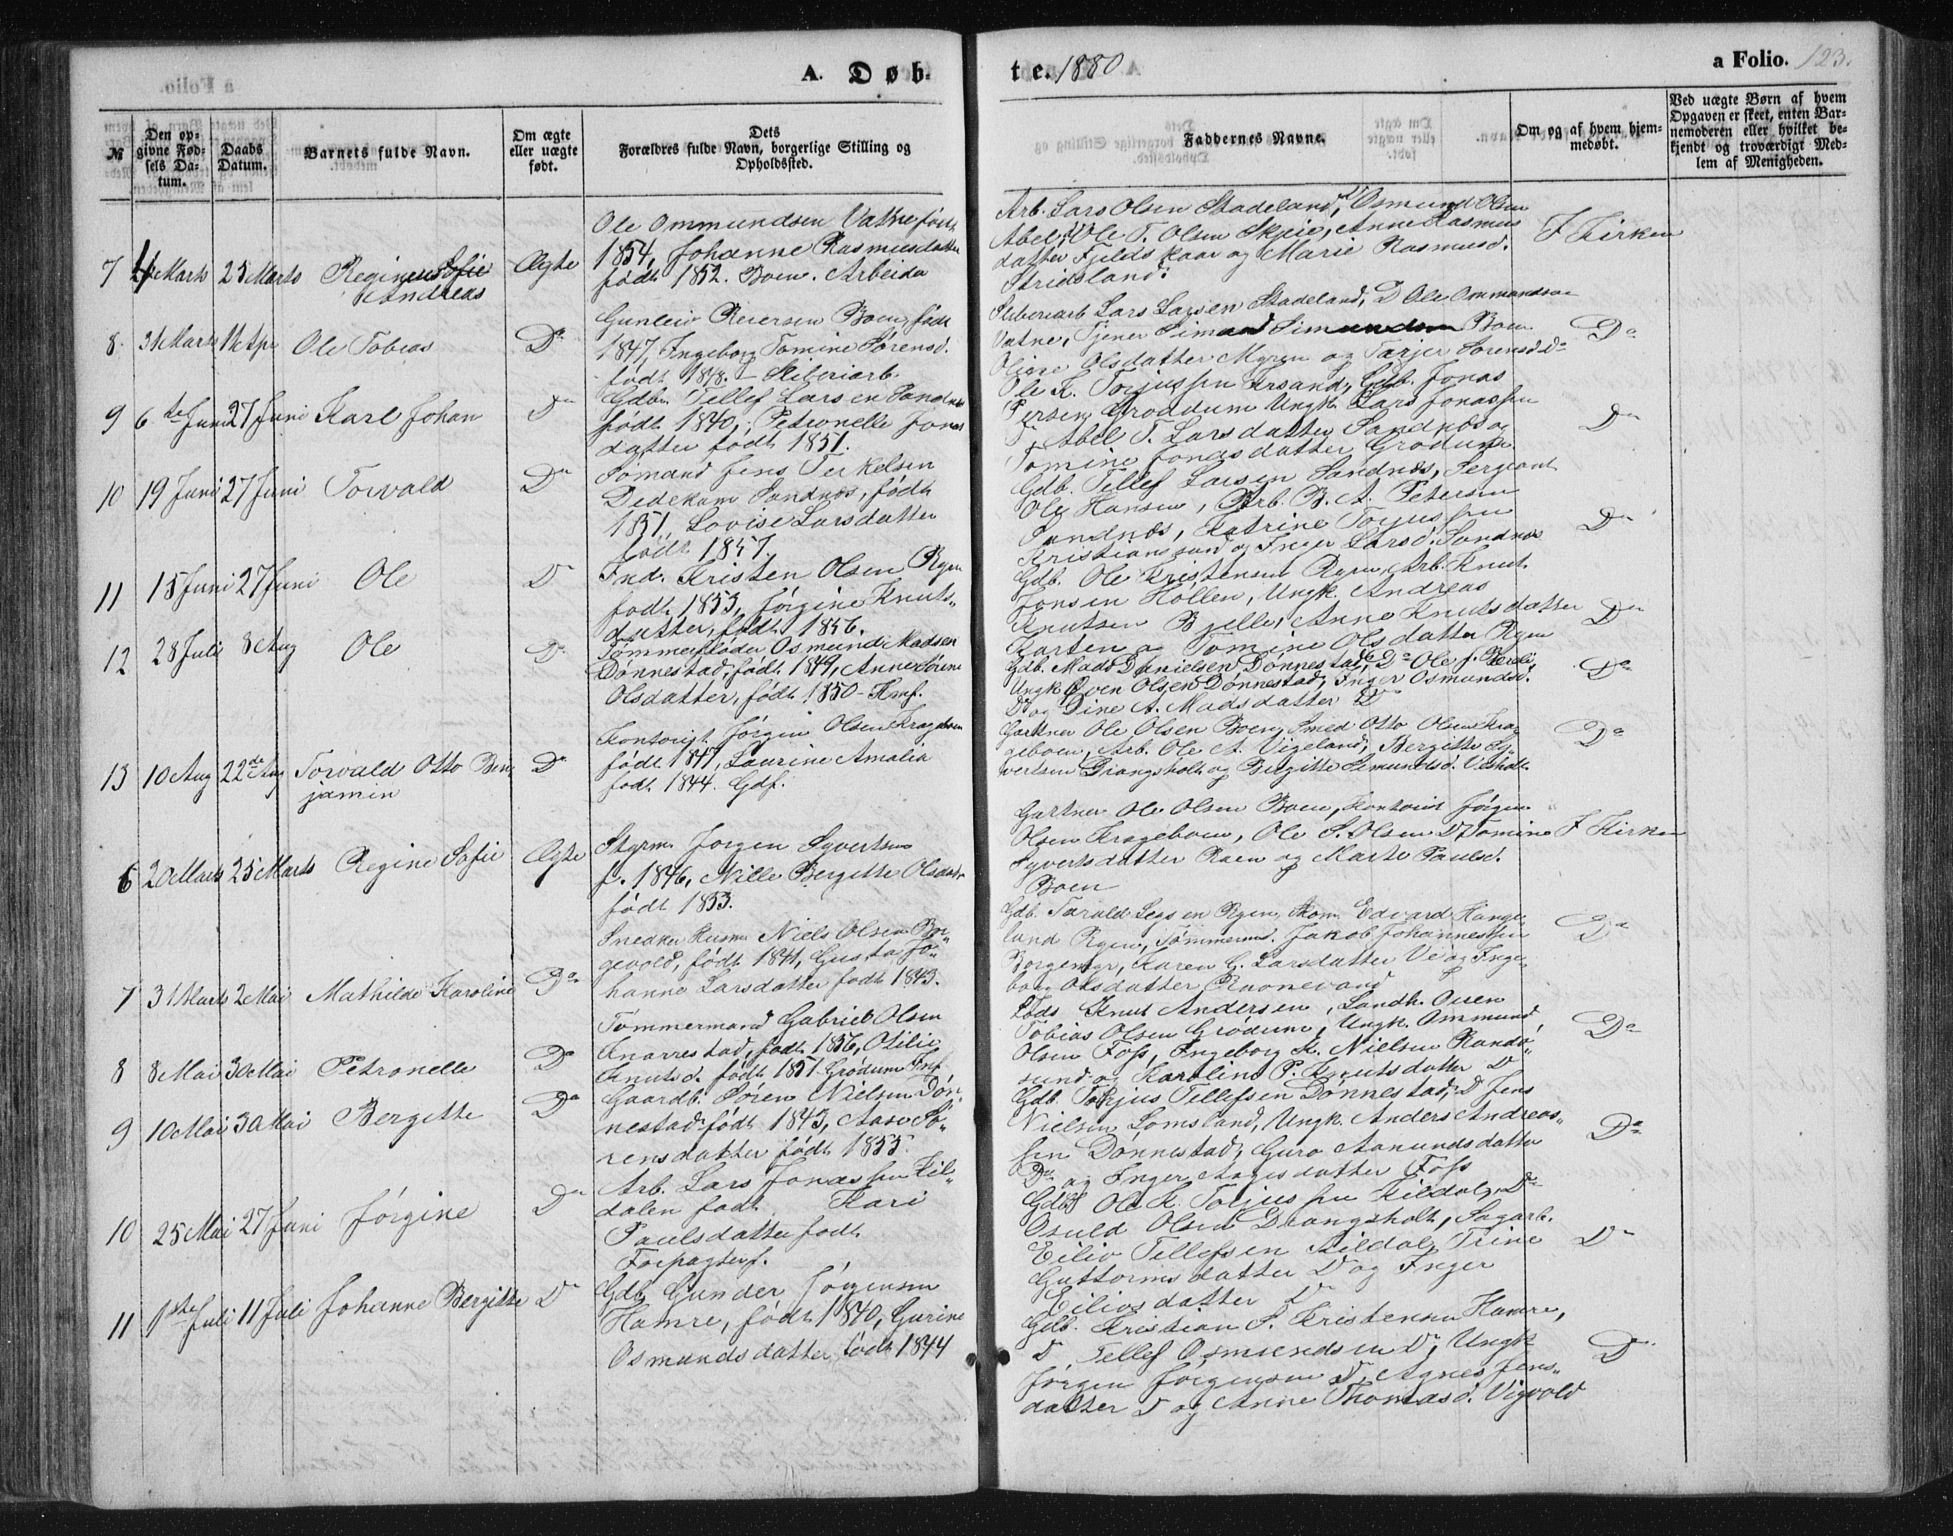 A. Døb-
te. 1880
a Folio. 123.
№
Den op-
givne Fød-
sels Da-
tum.
Daabs
Datum.
Barnets fulde Navn.
Om ægte
eller uægte
født.
Dets
Forældres fulde Navn, borgerlige Stilling og
Opholdssted.
Faddernes Navne.
Om og af hvem hjem-
medøbt.
Ved uægte Børn af hvem
Opgaven er skeet, enten Bar-
nemoderen eller hvilket be-
kjendt og troværdigt Med-
lem af Menigheden.
7 Marts 25 Marts Andreas Ægte
Ole Ommundsen Vatne født
1854, Johanne Rasmusdatter
født 1852. Boen. Arbeider
Arb. Lars Olsen Stadeland, Do Osmund Olsen
Abel, Do Ole T. Olsen Skeie, Anne Rasmus
datter Fjeldskaar og Marie Rasmusd.
Stridsland.
I Kirken
8 31 Marts Apr Ole Tobias Do
Gunleiv Reiersen Boen, født
1847, Ingeborg Tomine Sørensd.
født 1848. – Sliberiarb.
Sliberiarb Lars Larsen Stadeland, Do Ole Ommundsen
Vatne, Tjener Simon Boen
Olivie Olsdatter Myren og Tarjer Sørensd Do
Do
9 6te Juni 27 Juni Karl Johan Do
Gdb. Tellef Larsen Sandnes
født 1840, Petronelle Jonas
datter født 1851.
Ole K. Torjussen Krsand, Gdb. Jonas
Persen Grødum Ungk. Lars Jonassen
Abel T. Larsdatter Sandnes og
Tomine Jonasdatter Grødum
Do
10 19 Juni 27 Juni Torvald Do
Sømand Jens Terkelsen
Dedekam Sandnes, født
1851, Lovise Larsdatter
født 1857.
Gdb. Tellef Larsen Sandnes, Sergeant
Ole Hansen, Arb. B. A. Petersen
Sandnes, Katrine Torjussen
Kristianssand og Inger Larsd. Sandnes
Do
11 15 Juni 27 Juni Ole Do
Ind. Kristen Olsen Ryen
født 1853, Jørgine Knuts-
datter, født 1856.
Gdb. Ole Kristensen Ryen, Arb. Knut
Jonsen Hollen, Ungk. Andreas
Knutsen Bjelle, Anne Knutsdatter
Tomine Olsdatter Ryen
Do
12 28 Juli 8 Aug Ole Do
Tømmerfløder Osmund Madsen
Dønnestad, født 1849, Anne Sørine
Olsdatter, født 1850 – Kmf.
Gdb. Mads Danielsen Dønnestad, Do Ole J.
Ungk Even Olsen Dønnestad, Inger Osmundsd.
Do og Dine A. Madsdatter Do
Do
13 10 Aug 22de Aug Torvald Otto Ben-
jamin Do
Kontorist Jørgen Olsen Krageboen
født 1847, Laurine Amalia
født 1844. Gdf.
Gartner Ole Olsen Boen, Smed Otto Olsen Kra-
geboen, Arb. Ole A. Vigeland, Bergitte Sy-
vertsen Drangsholt og Bergitte Osmundsd. Vesholt.
Do
6 20 Marts 25 Marts Regine Sofie Ægte
Styrm. Jørgen Syvertsen
f. 1846, Nille Bergitte Olsdatr
født 1853.
Gartner Ole Olsen Boen, Kontorist Jørgen
Olsen Krageboen, Ole S. Olsen Do Tomine
Syvertsdatter Roen og Marte Paulsd.
Boen
I Kirken
7 31 Marts 2 Mai Mathilde Karoline Do
Snedker Husm Niels Olsen Bor-
gevold, født 1841, Gusta Jo-
hanne Larsdatter født 1843.
Gdb. Tarald Ryen, Edvard Hange-
land Ryen, Tømmerm. Jakob Johannessen
Borgemyr, Karen G. Larsdatter Ve og Inge-
borg Olsdatter Raonevand
Do
8 8 Mai 30 Mai Petronelle Do
Tømmermand Gabriel Olsen
Knarrestad, født 1856, Otilie
Knutsd. født 1857. Grødum Inf.
Lods Knut Andersen, Landh. Olsen
Tobias Olsen Grødum, Ungk. Ommund
Olsen Foss, Ingeborg K. Nielsen Randø-
sund og Karoline P. Knutsdatter Do
Do
9 10 Mai 30 Mai Bergitte Do
Gaardb. Søren Nielsen Døn-
nestad født 1843, Aase Sø-
rensdatter født 1855.
Gdb. Torjus Tellefsen Dønnestad, Do Jens
Nielsen Lømsland, Ungk. Anders Andreas-
sen Dønnestad, Guro Aanundsdatter
Do og Inger Aagesdatter Foss
Do
10 25 Mai 27 Juni Jørgine Do
Arb. Lars Jonassen Kil-
dalen født Kari
Paulsdatter født
Forpagterf.
Gdb Ole K. Torjussen Kildal, Do
Osuld Olsen Drangsholt, Sagarb.
Eiliv Tellefsen Kildal, Trine
Guttormsdatter Do og Inger
Eilivsdatter Do
Do
11 1ste Juli 11 Juli Johanne Bergitte Do
Gdb. Gunder Jørgensen
Hamre, født 1840, Gurine
Osmundsdatter, født 1844
Gdb. Kristian S. Kristensen Hamre,
Do Tellef Osmundsen Do, Ungk
Jørgen Jørgensen Do, Agnes Jens-
datter Do og Anne Thomasd. Vigvold
Do